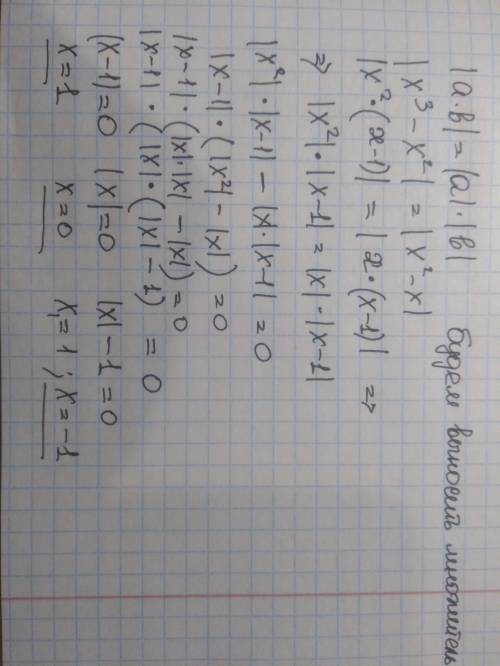 |a·b| = |a|·|b| будем выносить множитель
|x³ - x²| = |x² - x|
|x²·(x-1)| = |x·(x-1)| =>
=> |x²|·|x-1| = |x|·|x-1|
|x²|·|x-1| - |x|·|x-1| = 0
|x-1|·(|x²| - |x|) = 0
|x-1|·(|x|·|x| - |x|) = 0
|x-1|·(|x|·(|x| - 1) = 0
|x-1|=0 |x|=0 |x| - 1 = 0
x=1 x=0 x₁=1; x=-1